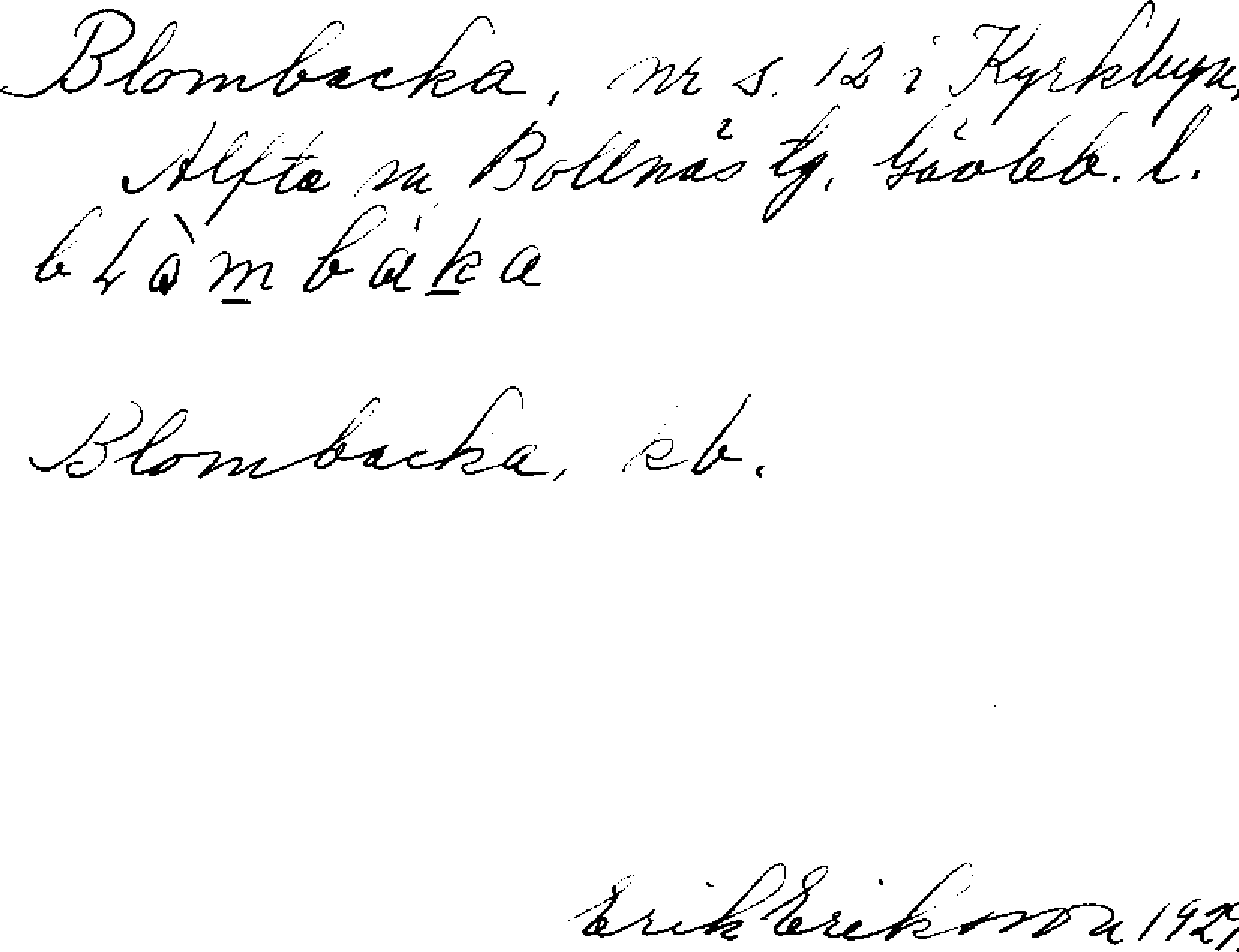 Blombacka, nr s. 12 i Kyrkbyn,
Alfta sn, Bollnäs tg, Gävleb. l.
bLòmbàka
Blombacka, kb.
Erik Eriksson 1929.